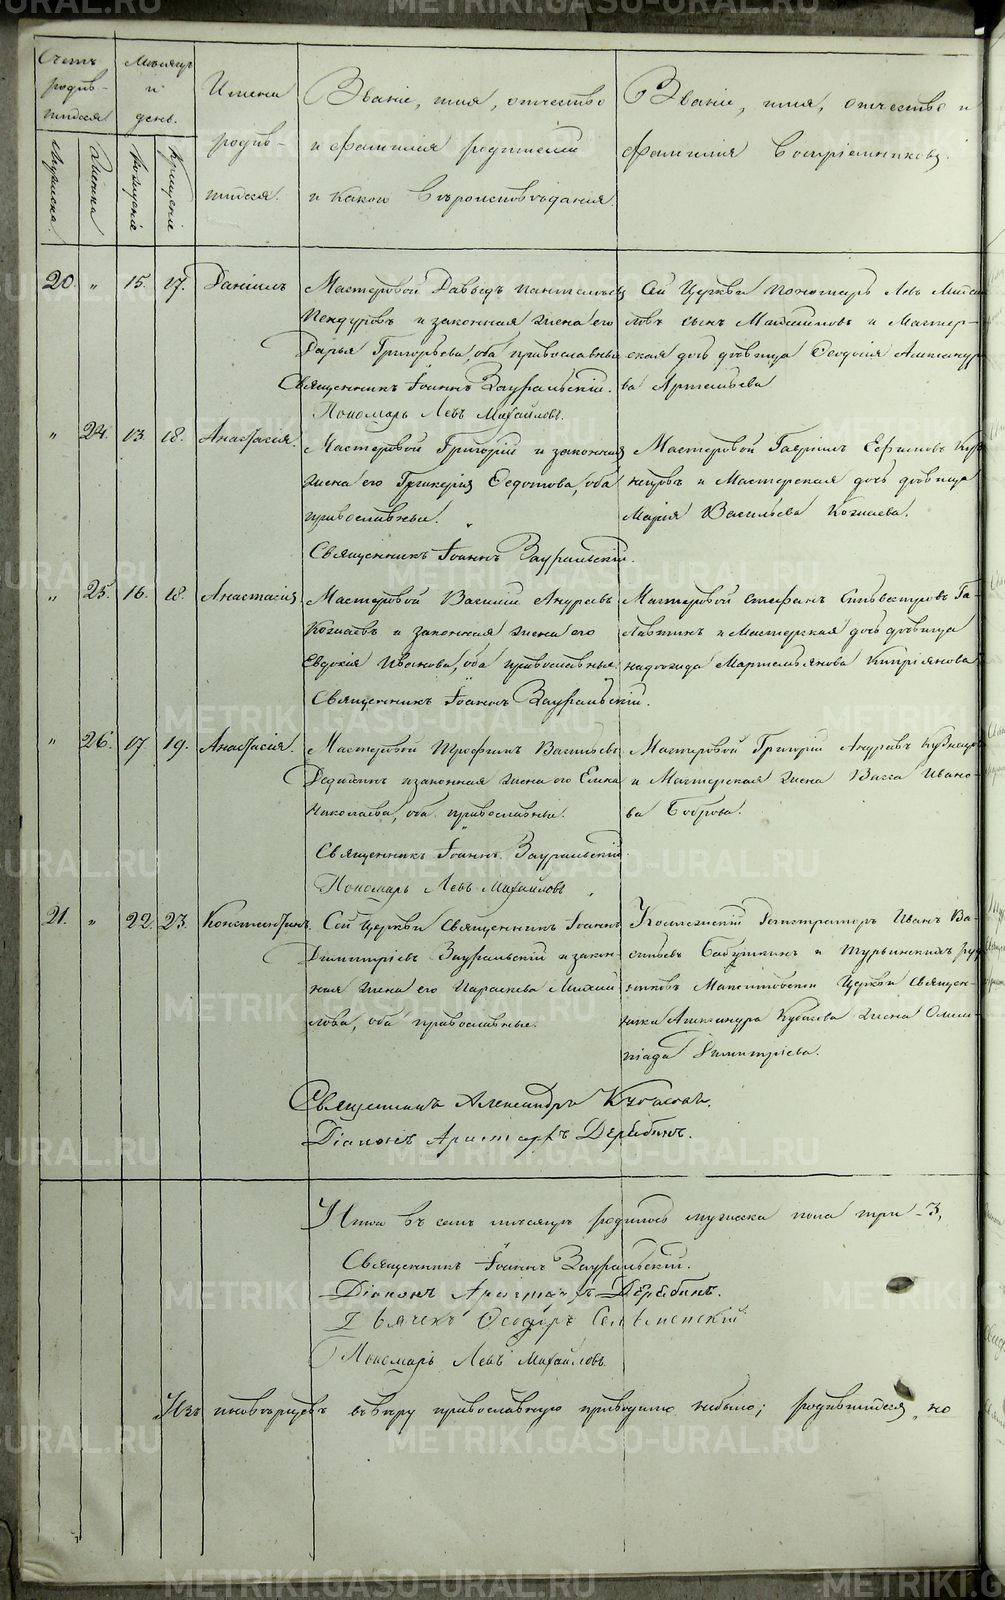 Счетъ родив- шихся
Мужеска.
Женска
Месяцъ и день.
Рожденіе
Крещеніе
Имена родив- шихся.
Званіе, имя, отчество
и фамилія родителей
и какого вѣроисповѣданія.
Званіе, имя, отчество и
фамилія воспріемниковъ.
20. „ 15. 17. Даніилъ
Мастеровой Давыдъ Пантелѣевъ
и законная жена его
Дарья Григорьева, оба православные
Священникъ Іоаннъ Зауральскій.
Пономарь Левъ Михайловъ.
Сей Церкви Пономарь Левъ Михай-
ловъ сынъ и Мастер-
ская дочь дѣвица Ѳеодосія Александро-
ва Артемьева
„ 24. 13. 18. Анастасія.
Мастеровой Григорій и законная
жена его Гликерія Ѳедотова, оба
православные.
Священникъ Іоаннъ Зауральскій.
Мастеровой Гавріилъ Ефимовъ Куз-
нецовъ и Мастерская дочь дѣвица
Марія Васильева
„ 25. 16. 18. Анастасія
Мастеровой Василій Андреевъ
и законная жена его
Евдокія Иванова, оба православные
Священникъ Іоаннъ Зауральскій.
Мастеровой Стефанъ Сильвестровъ Га-
и Мастерская дочь дѣвица
Надежда Мартемьянова Кипріянова
„ 26. 17 19. Анастасія.
Мастеровой Трофимъ Васильевъ
и законная жена его Елена
Николаева, оба православные.
Священникъ Іоаннъ Зауральскій
Пономарь Левъ Михайловъ
Мастеровой Григорій Андреевъ Кузнецовъ
и Мастерская жена Васса Ивано-
ва Боброва.
21. „ 22. 23. Константинъ.
Сей Церкви Священникъ Іоаннъ
Димитріевъ Зауральскій и закон-
ная жена его Параскева Михай-
лова, оба православные.
Коллежскій Регистраторъ Иванъ Ва-
сильевъ Бабушкинъ и Турьинскихъ руд-
никовъ Максимовской Церкви Священ-
ника Александра жена Олим-
піада Димитріева.
Священникъ Александръ
Діаконъ Аристархъ Дерябинъ.
Итого въ семъ месяце родилось мужеска пола три - 3,
Священникъ Іоаннъ Зауральскій.
Діаконъ Аристархъ Дерябинъ.
Дьячекъ Ѳеодоръ
Пономарь Левъ Михайловъ
Изъ иновѣрцевъ въ вѣру православную приводимо небыло; родившійся, но
METRIKI.GASO-URAL.RU